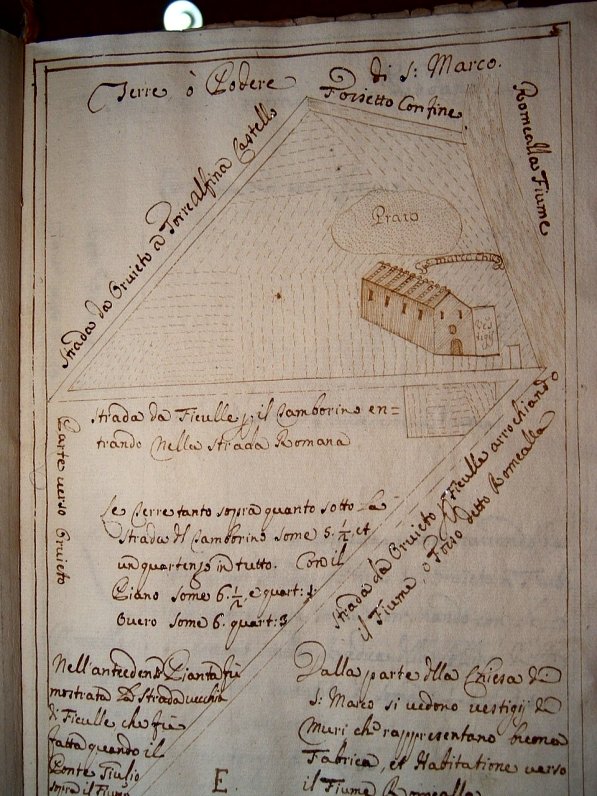 Terre ò Podere di S: Marco.
Fossetto Confine
Romealla Fiume
Strada da Oruieto a Torre Alfina Castello
Prato
S: Marco Chie
Strada da Ficulle p: il Camborino en=
trando nella Strada Romana
Parte verso Oruieto
Strada da Oruieto à Ficulle arrochiando
il Fiume, o Fosso detto Romealla
Le Terre tanto sopra quanto sotto la
Strada del Camborino some 5. ½, et
un quartengo in tutto. Con il
Piano some 6. ½, e quart: 1:
Ouero some 6. quart: 3
Nell'antedente Pianta fù
mostrata la Strada vecchia
di Ficulle che fù
fatta quando il
Ponte Giulio
sopra il Fiume
E.
Dalla parte della Chiesa di
S: Marco si vedono vestigij di
Muri che rappresentano buona
Fabrica, et Habitatione verso
il Fiume Romealla